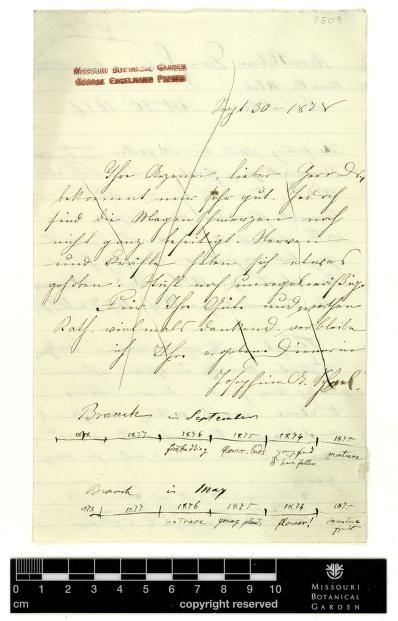 7509
MISSOURI BOTANICAL GARDEN
GEORGE ENGELMANN PAPERS
Sept. 30 - 1878
Ihre Arzenei, lieber Herr Dr.,
bekommt mir sehr gut. Jedoch
sind die Magenschmerzen noch
nicht ganz beseitigt. Nerven
und Kräfte haben sich etwas
gehoben. Stuhl noch unregelmäßig.
Für Ihre Güte und werthen
Rath vielmals dankend verbleibe
ich Ihre ergebene Dienerin
Josephine
Branch in September
1878 1877 1876 1875 1874 1875
flower buds mature
fallen
Branch in May
1878 1877 1876 1875 1874 1875
no trace young flower! immature
fruit
0 1 2 3 4 5 6 7 8 9 10
cm
copyright reserved
MISSOURI
BOTANICAL
GARDEN